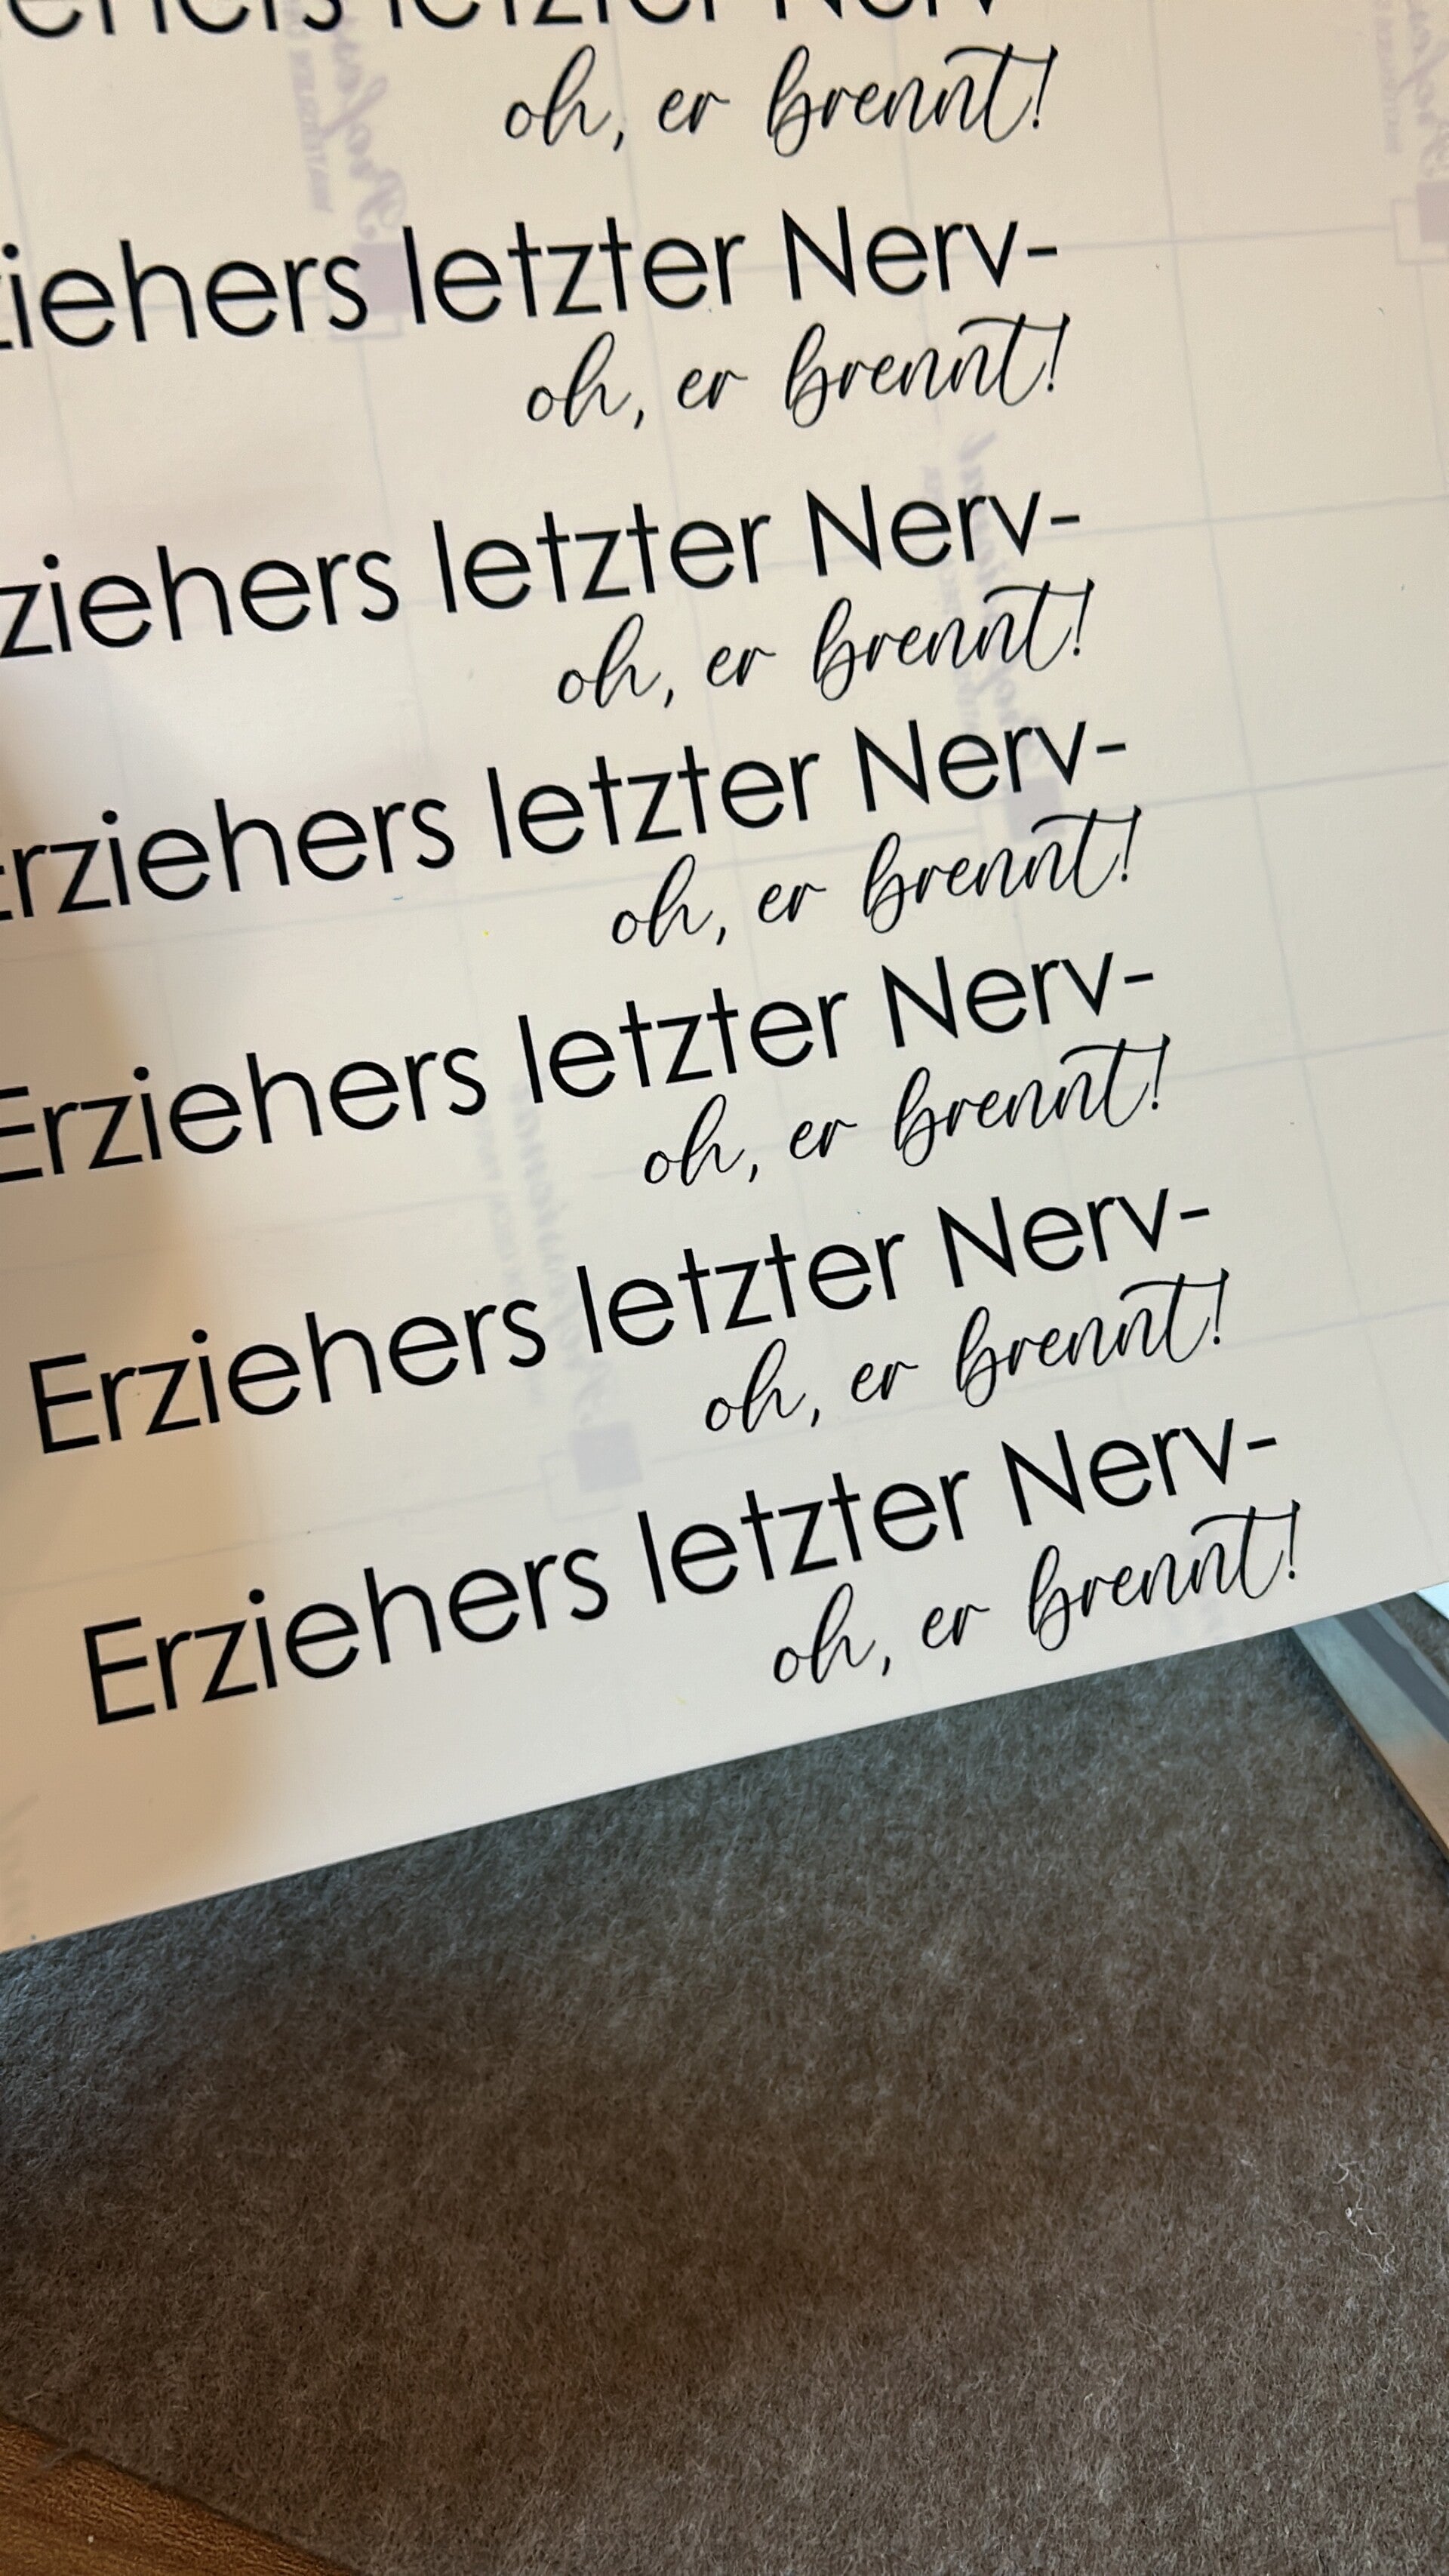 letzter Nerv
oh, er brennt!
letzter Nerv-
oh, er brennt!
letzter Nerv-
oh, er brennt!
Erziehers letzter Nerv-
oh, er brennt!
Erziehers letzter Nerv-
oh, er brennt!
Erziehers letzter Nerv-
oh, er brennt!
Erziehers letzter Nerv-
oh, er brennt!